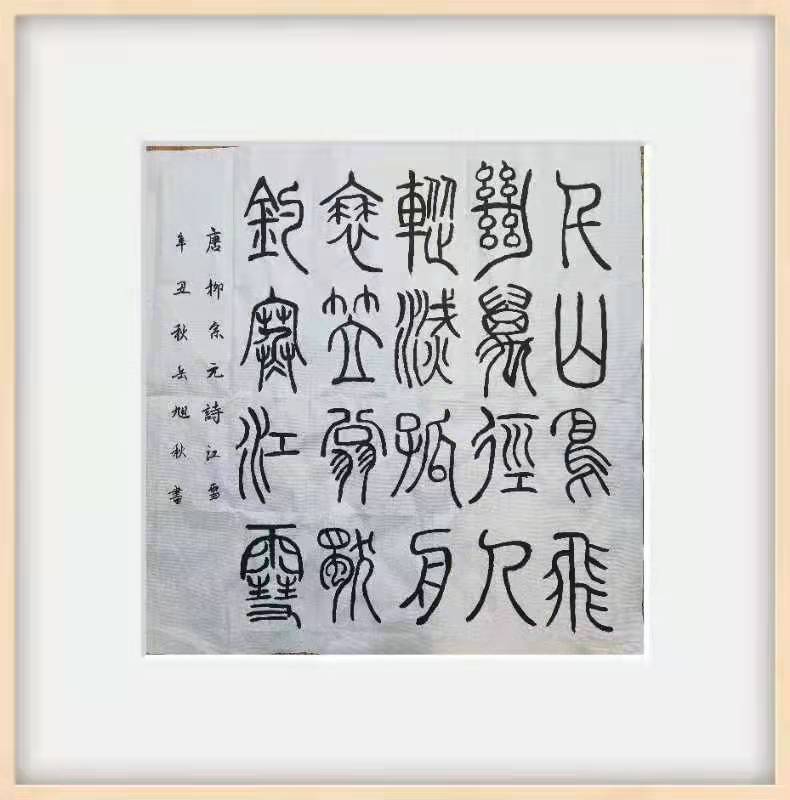 千山鳥飛
絕萬徑人
蹤滅孤舟
蓑笠翁獨
釣寒江雪
唐柳宗元詩江雪
辛丑秋岳旭秋書